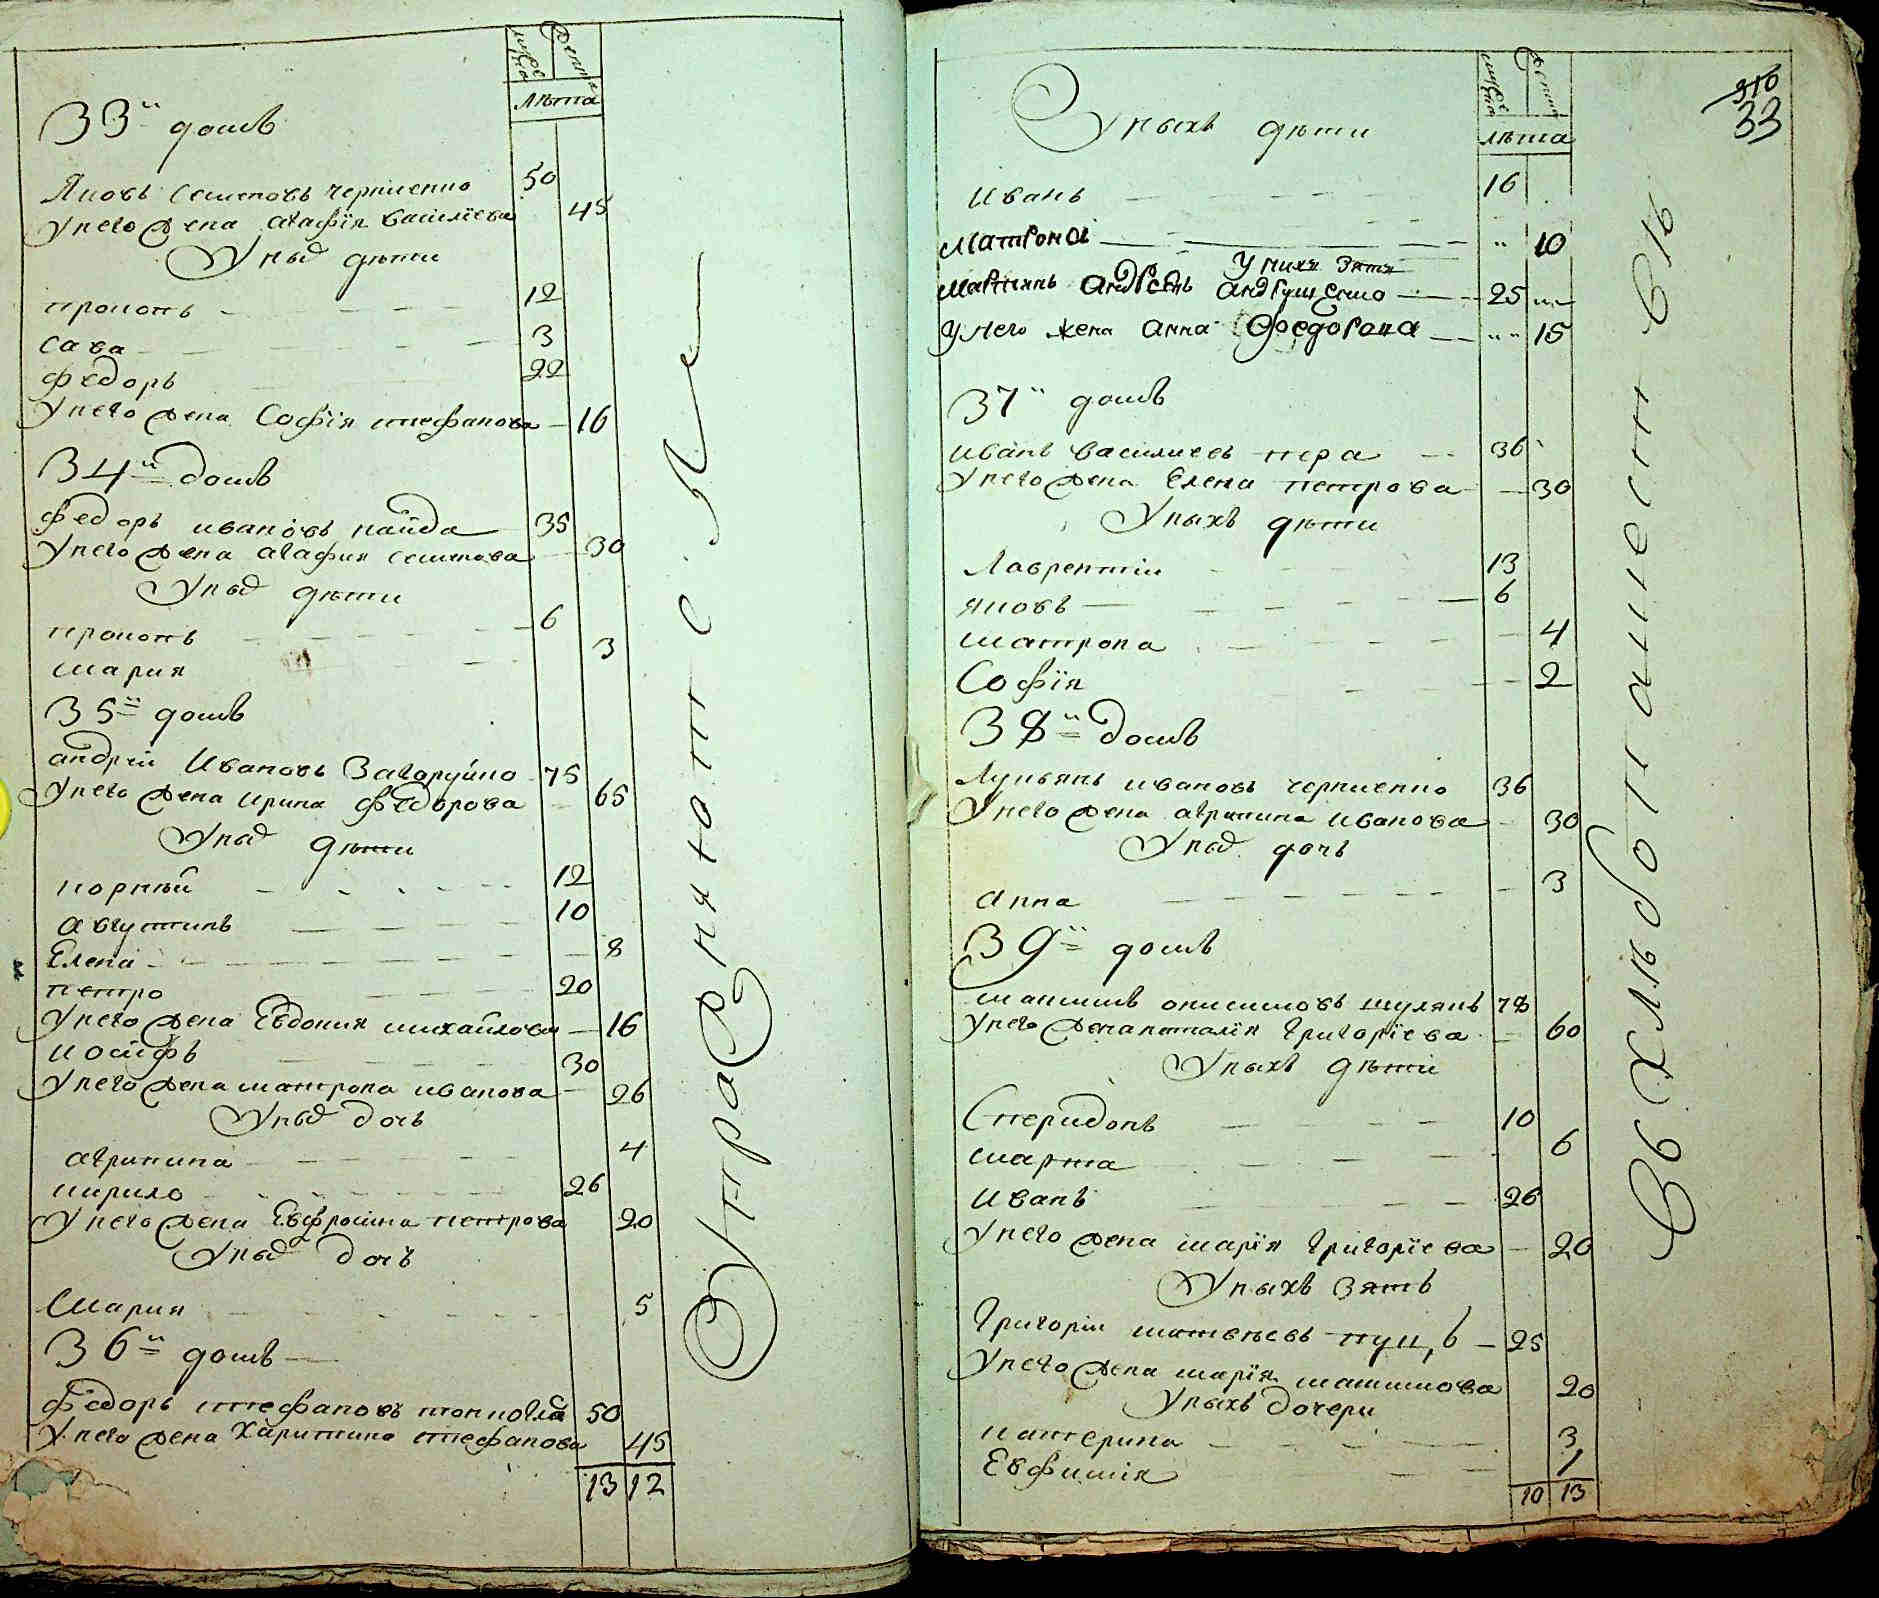 мужеска
женска
лѣта
33й домъ
Яковъ Семеновъ Черниенко 50
У него жена Агафїя Васильева 45
У ных дѣти
Прокопъ 12
Сава 3
Федоръ 22
У него жена Софїя Стефанова 16
34й домъ
Федоръ Ивановъ Найда 35
У него жена Агафия Семенова 30
У ных дѣти
Прокопъ 6
Мария 3
35й домъ
Андрій Ивановъ Загоруйко 75
У него жена Ирина Федорова 65
У ных дѣти
Корнѣй 12
Августинъ 10
Елена 8
Петро 20
У него жена Евдокия Михайлова 16
Иосифъ 30
У него жена Матрона Иванова 26
У ных дочь
Агрипина 4
Кирило 26
У него жена Евфросина Петрова 20
У ных дочь
Мария 5
36й домъ
Федоръ Стефановъ 50
У него жена Харитина Стефанова 45
13 12
мужеска
женска
лѣта
310
33
У ныхъ дѣти
Иванъ 16
Матрона 10
У нихъ зятя
Мартинъ Андреевъ Андрущенко 25
У него жена Анна Феодорова 15
37й домъ
Иванъ Василиевъ Пера 36
У него жена Елена Петрова 30
У ныхъ дѣти
Лаврентїи 13
Яковъ 6
Матрона 4
Софїя 2
38й домъ
Лукьянъ Ивановъ Черниенко 36
У него жена Агрипина Иванова 30
У ных дочь
Анна 3
39й домъ
Максимъ Онисимовъ Шулякъ 78
У него жена Наталїя Григорїева 60
У ныхъ дѣти
Спередонъ 10
Марта 6
Иванъ 26
У него жена Марїя Григорїева 20
У ныхъ зять
Григорїи Матвѣевъ Куцъ 25
У него жена Марїя Максимова 20
У ныхъ дочери
Катерина 3
Евфимїя 1
10 13